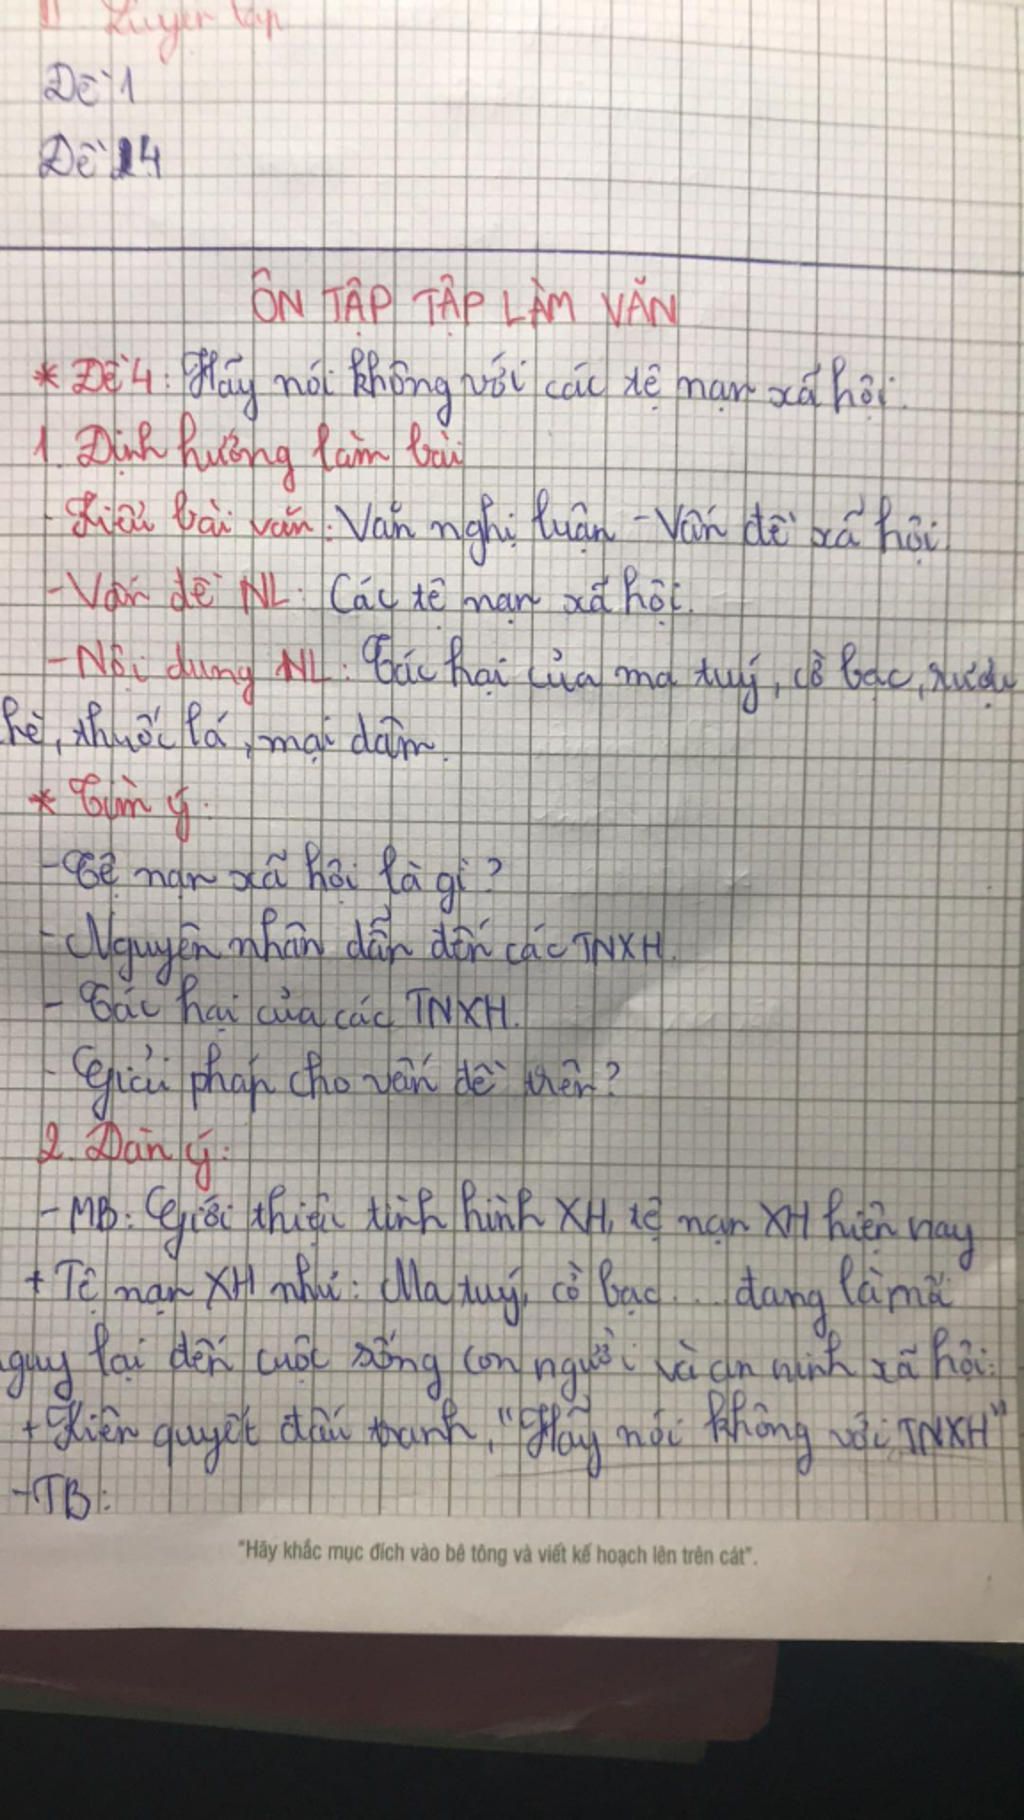 II Luyện tập
Đề 1
Đề 4
ÔN TẬP TẬP LÀM VĂN
* Đề 4: Hãy nói không với các tệ nạn xã hội.
1. Định hướng làm bài
- Kiểu bài văn: Văn nghị luận - Vấn đề xã hội
- Vấn đề NL: Các tệ nạn xã hội.
- Nội dung NL: Tác hại của ma tuý, cờ bạc, rượu
hè, thuốc lá, mại dâm.
* Tìm ý:
- Tệ nạn xã hội là gì?
- Nguyên nhân dẫn đến các TNXH.
- Tác hại của các TNXH.
- Giải pháp cho vấn đề trên?
2. Dàn ý:
- MB: Giới thiệu tình hình XH, tệ nạn XH hiện nay
+ Tệ nạn XH như: Ma tuý, cờ bạc... đang là mã
nguy lại đến cuộc sống con người và an ninh xã hội.
+ Kiên quyết đấu tranh, "Hãy nói không với TNXH"
- TB:
"Hãy khắc mục đích vào bê tông và viết kế hoạch lên trên cát".